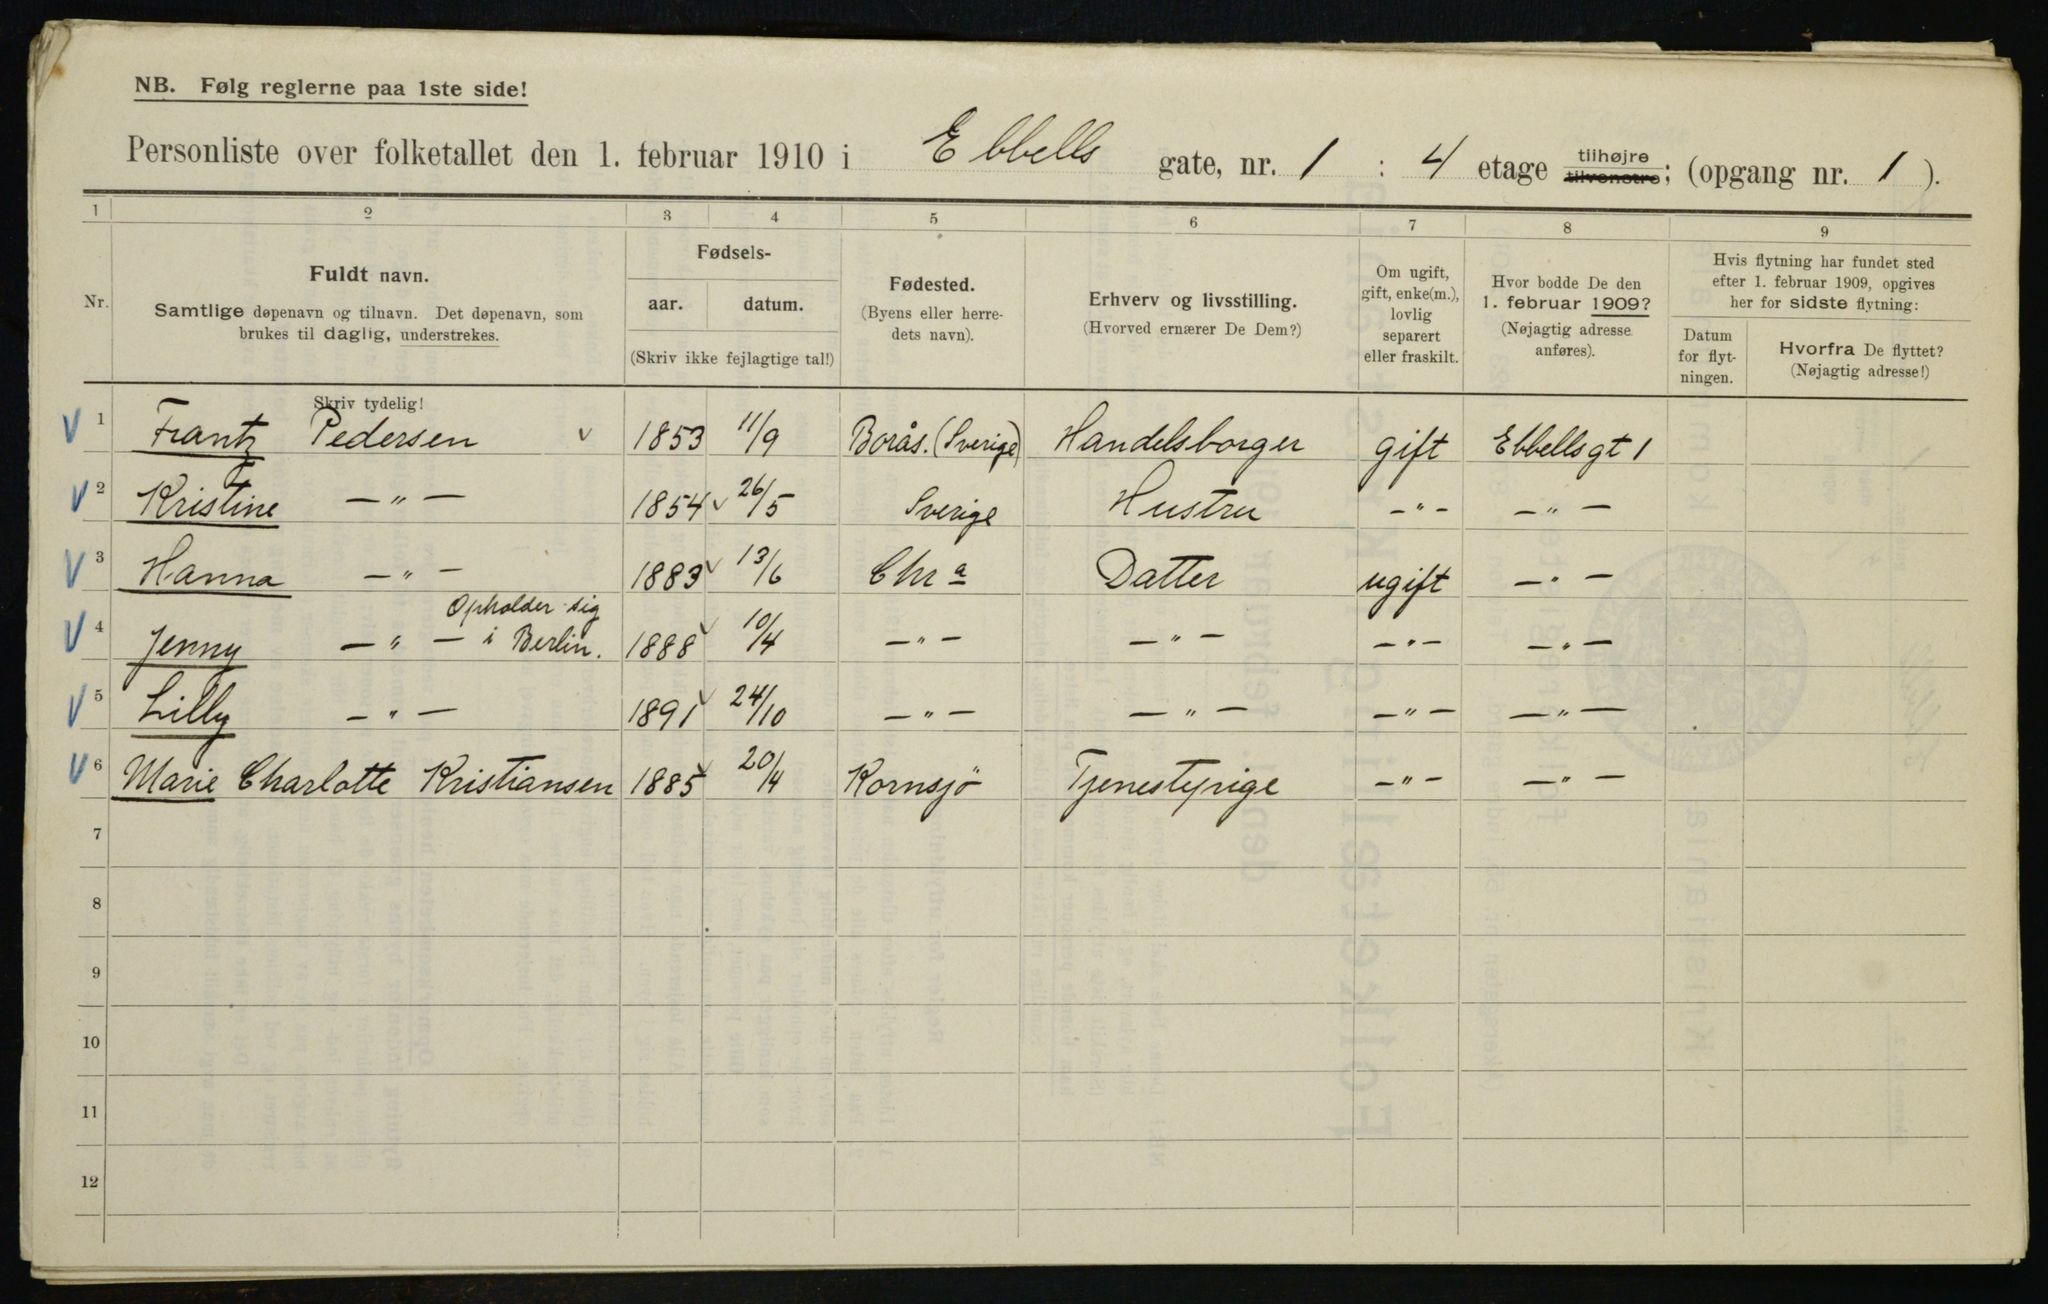 NB. Følg reglerne paa 1ste side!
Personliste over folketallet den 1. februar 1910 i Ebbells gate, nr. 1 : 4 etage tilhøjre tilvenstre; (opgang nr. 1).
1 2 3 4 5 6 7 8 9
Nr.
Fuldt navn.
Samtlige døpenavn og tilnavn. Det døpenavn, som
brukes til daglig, understrekes.
Skriv tydelig!
Fødsels-
aar. datum.
(Skriv ikke fejlagtige tal!)
Fødested.
(Byens eller herre-
dets navn).
Erhverv og livsstilling.
(Hvorved ernærer De Dem?)
Om ugift,
gift, enke(m.),
lovlig
separert
eller fraskilt.
Hvor bodde De den
1. februar 1909?
(Nøjagtig adresse
anføres).
Hvis flytning har fundet sted
efter 1. februar 1909, opgives
her for sidste flytning:
Datum
for flyt-
ningen.
Hvorfra De flyttet?
(Nøjagtig adresse!)
V 1 Frantz Pedersen v 1853 11/9 Borås. (Sverige) Handelsborger gift Ebbellsgt 1
V 2 Kristine — „ — 1854 v 26/5 Sverige Hustru — „ — — „ —
V 3 Hanna — „ — 1883 v 13/6 Chra Datter ugift — „ —
Opholder sig
V 4 Jenny — „ — i Berlin. 1888 v 10/4 — „ — — „ — — „ — — „ —
V 5 Lilly — „ — 1891 v 24/10 — „ — — „ — — „ — — „ —
V 6 Marie Charlotte Kristiansen 1885 v 20/4 Kornsjö Tjenestepige — „ — — „ —
7
8
9
10
11
12